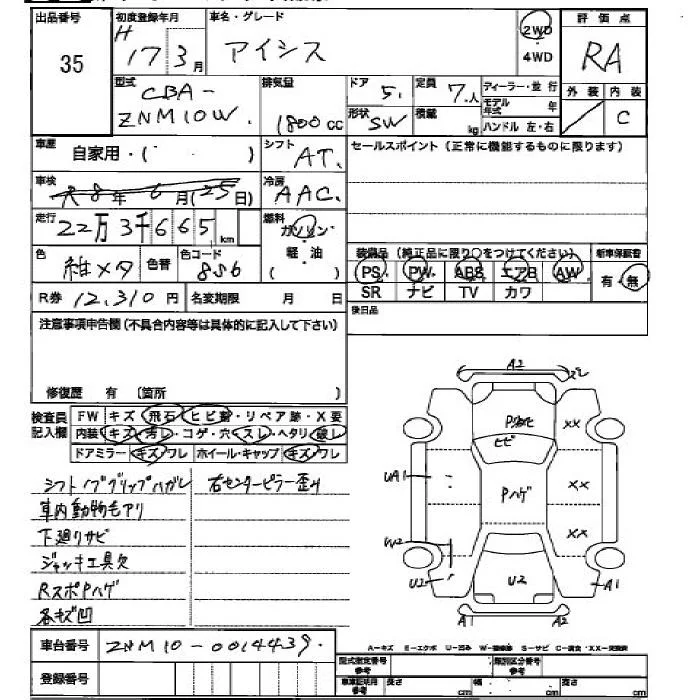 出品番号 35
初度登録年月 H 17 3月
車名・グレード アイシス
2WD
4WD
評価点 RA
外装 内装 C
型式 CBA-
ZNM10W.
排気量 1800cc
ドア 5.
定員 7.人
ディーラー・並行
モデル年式 年
形状 SW
積載 kg
ハンドル 左・右
車歴 自家用・( ・ )
シフト AT.
セールスポイント(正常に機能するものに限ります)
車検 R8年6月(25日)
冷房 AAC.
走行 22万3千665km
燃料 ガソリン・
軽・油
色 紺メタ
色替
色コード 8S6
装備品(純正品に限り○をつけてください)
新車保証書
PS PW ABS エアB AW
有・無
SR ナビ TV カワ
R券 12,310円
名変期限 月 日
後日品
注意事項申告欄(不具合内容等は具体的に記入して下さい)
修復歴 有 〔箇所 〕
検査員記入欄
FW キズ・飛石・ヒビ・リペア跡・X要
内装・キズ・汚レ・コゲ・穴・スレ・ヘタリ・破レ
ドアミラー・キズ・ワレ ホイール・キャップ・キズ・ワレ
シフトノブグリップハガレ 右センターピラー歪み
車内動物毛アリ
下廻りサビ
ジャッキ工具欠
RスポPハゲ
各キズ凹
A2
P劣化
ヒビ
XX
UA1
Pハゲ
XX
W2
XX
U2
U2
A1
A1
A2
車台番号 ZNM10-0014439.
登録番号
A-キズ E-エクボ U-凹み W-補修跡 S-サビ C-腐食・XX-交換済
型式指定番号 参考
類別区分番号 参考
車庫証明用 参考 長さ cm 幅 cm 高さ cm